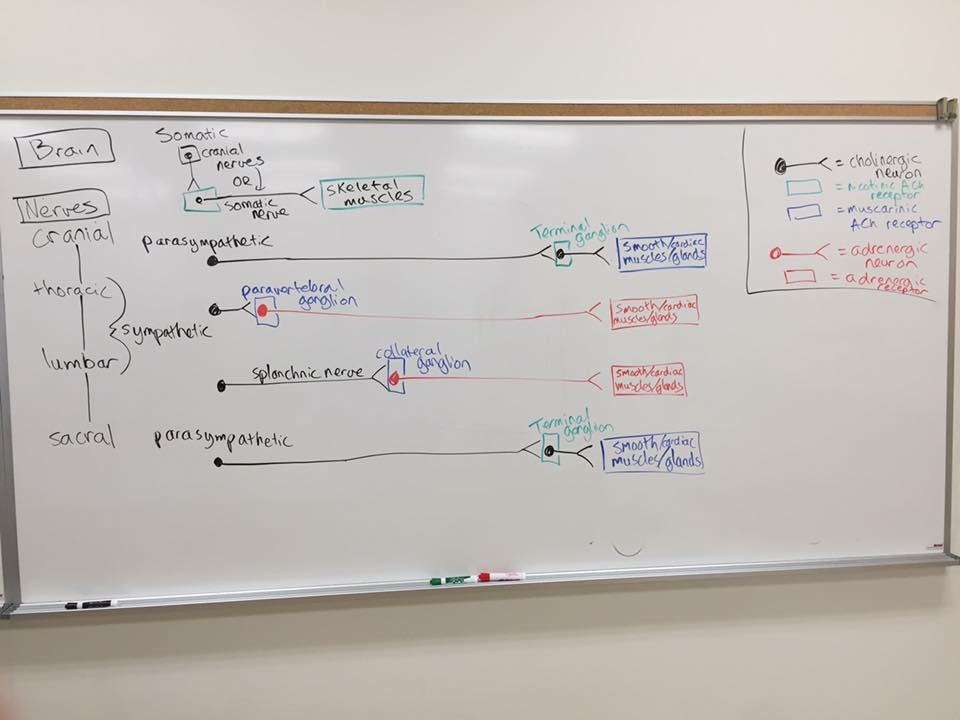 Brain
Somatic
cranial
nerves
OR
somatic
nerve
skeletal
muscles
Nerves
cranial
thoracic
lumbar
sacral
sympathetic
parasympathetic
Terminal
ganglion
smooth/cardiac
muscles/glands
paravertebral
ganglion
smooth/cardiac
muscles/glands
splanchnic nerve
collateral
ganglion
smooth/cardiac
muscles/glands
parasympathetic
Terminal
ganglion
smooth/cardiac
muscles/glands
= cholinergic
neuron
= nicotinic ACh
receptor
= muscarinic
ACh receptor
= adrenergic
neuron
= adrenergic
receptor